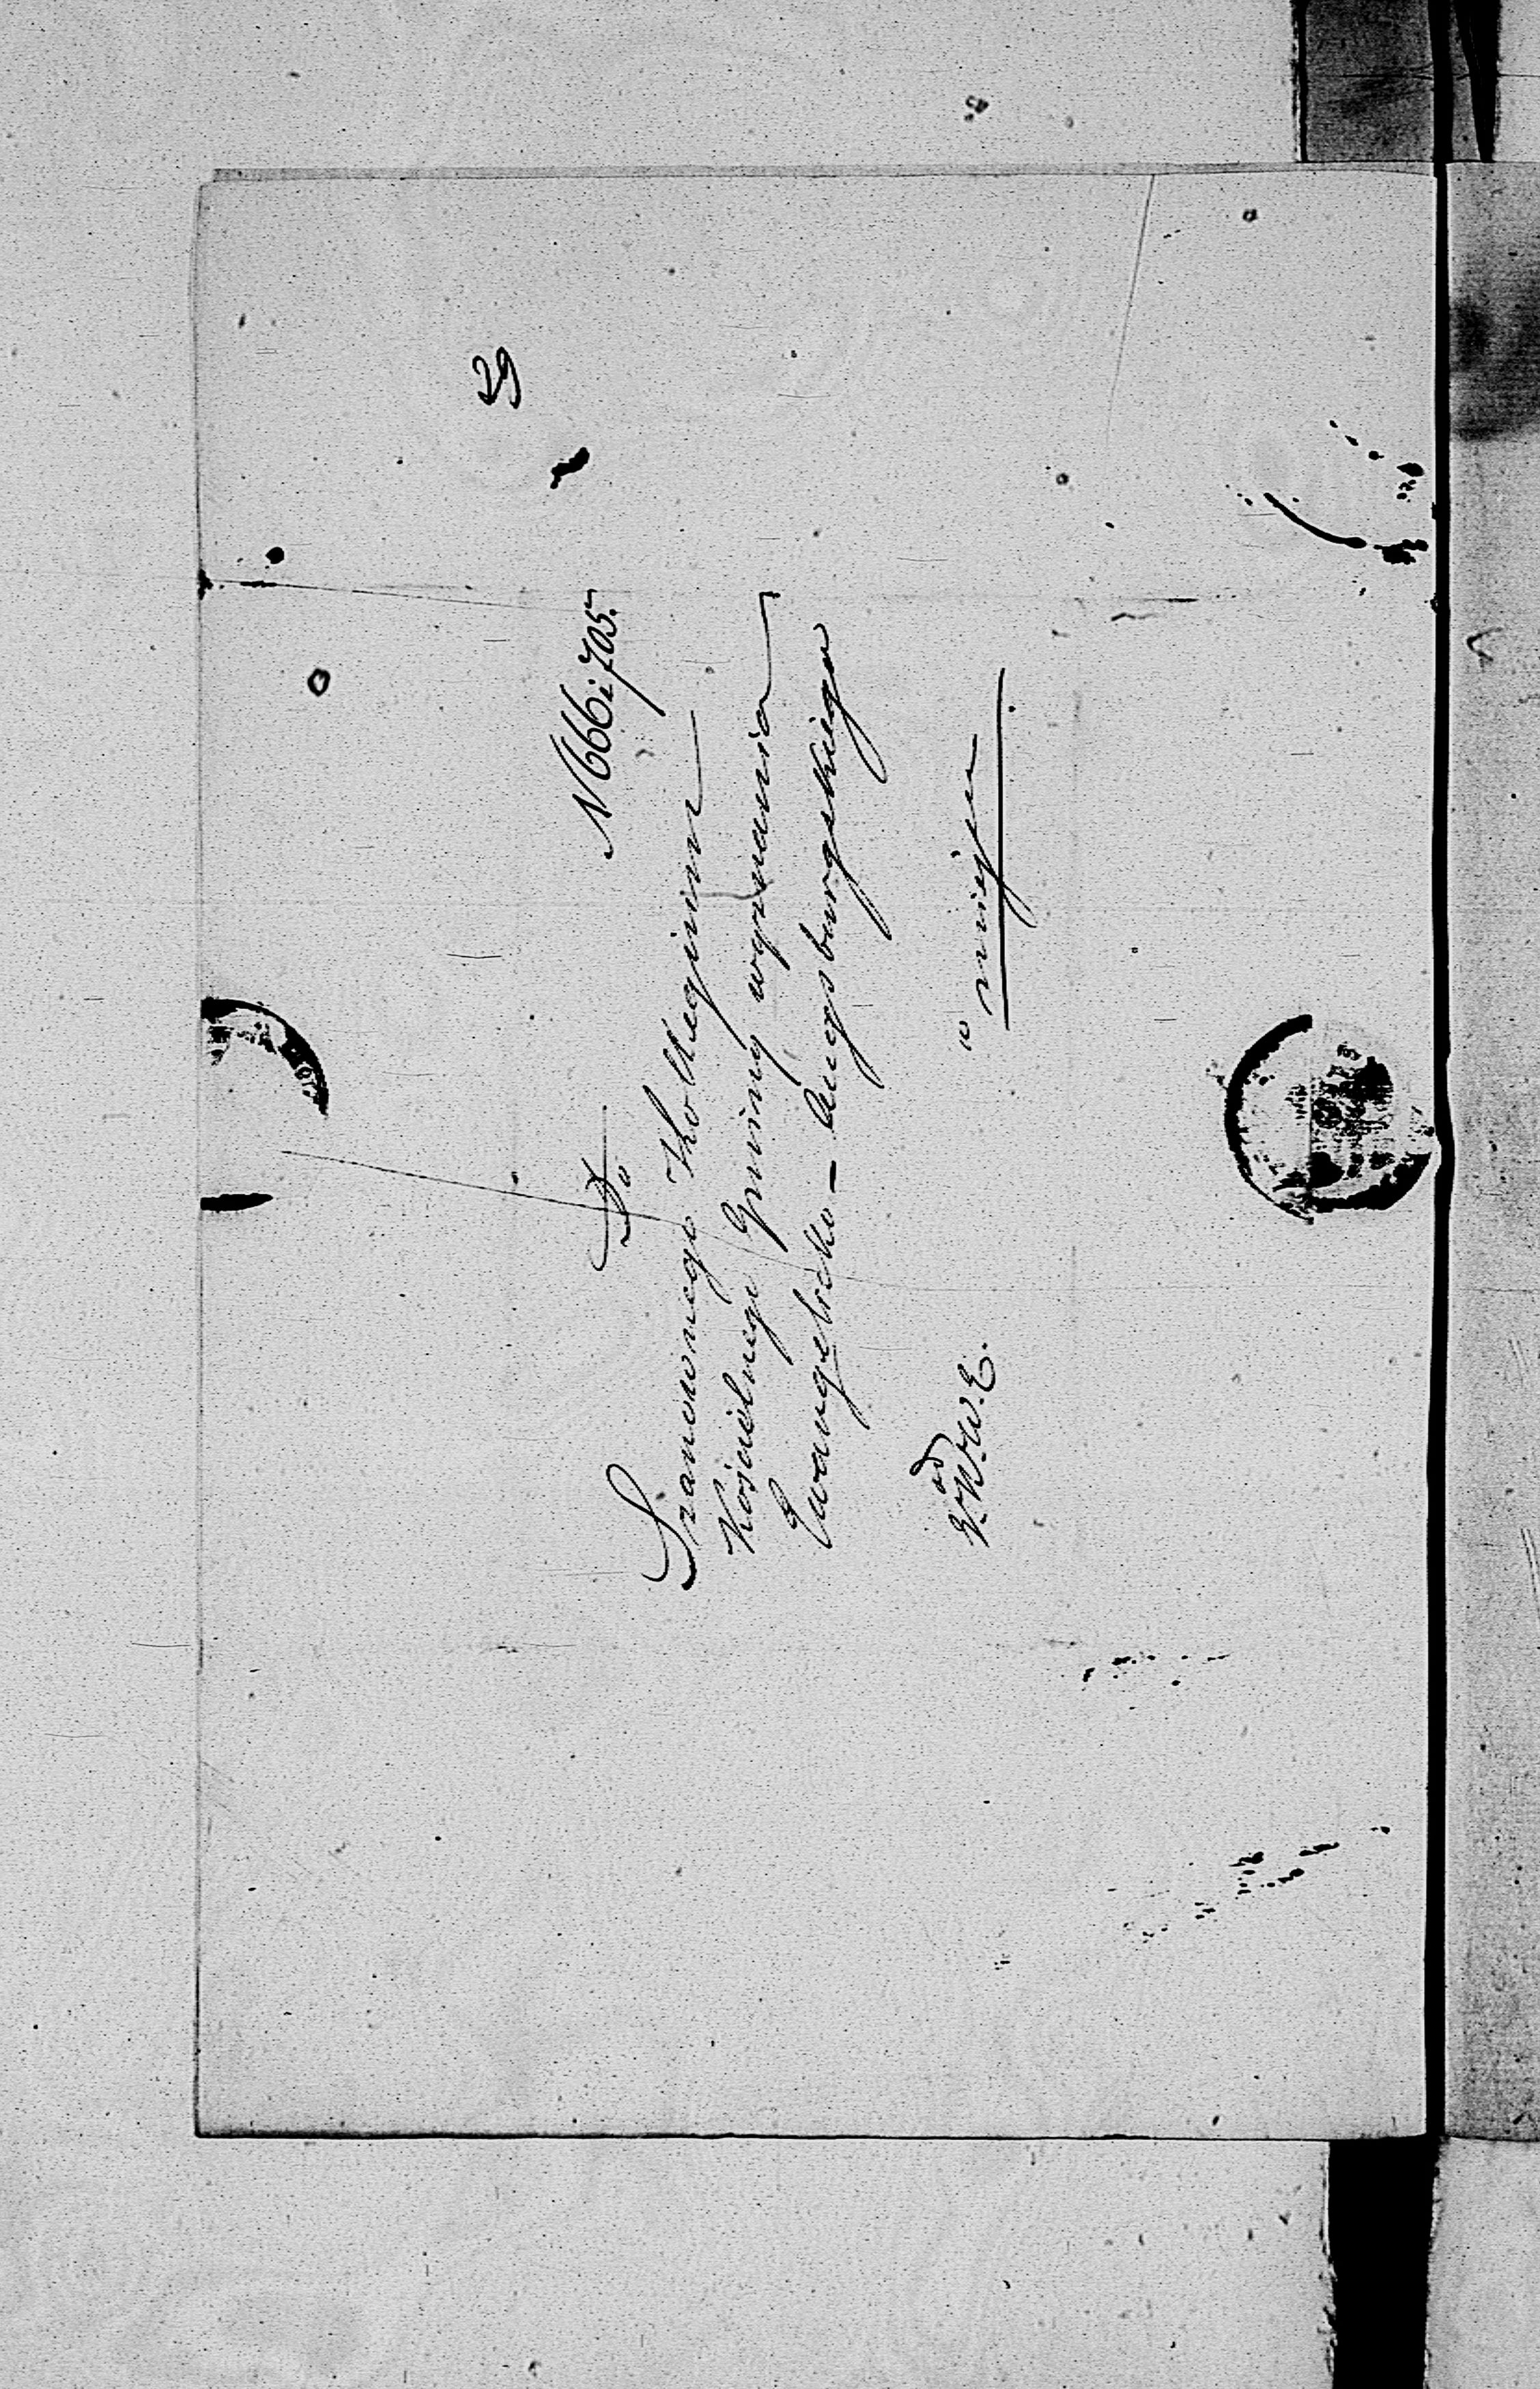 29
N 666 i 705.
Do
Szanownego Kollegium
Kościelnego Gminy wyznania
Ewangelicko - Augsburgskiego
w miejscu
od
W. E.